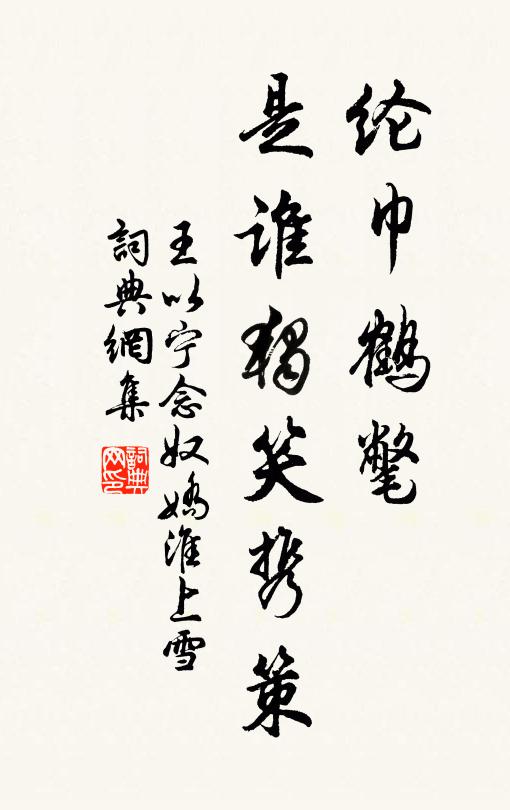 纶巾鹤氅
是谁独笑携策
王以宁念奴娇淮上雪
詞典網集
詞典网印